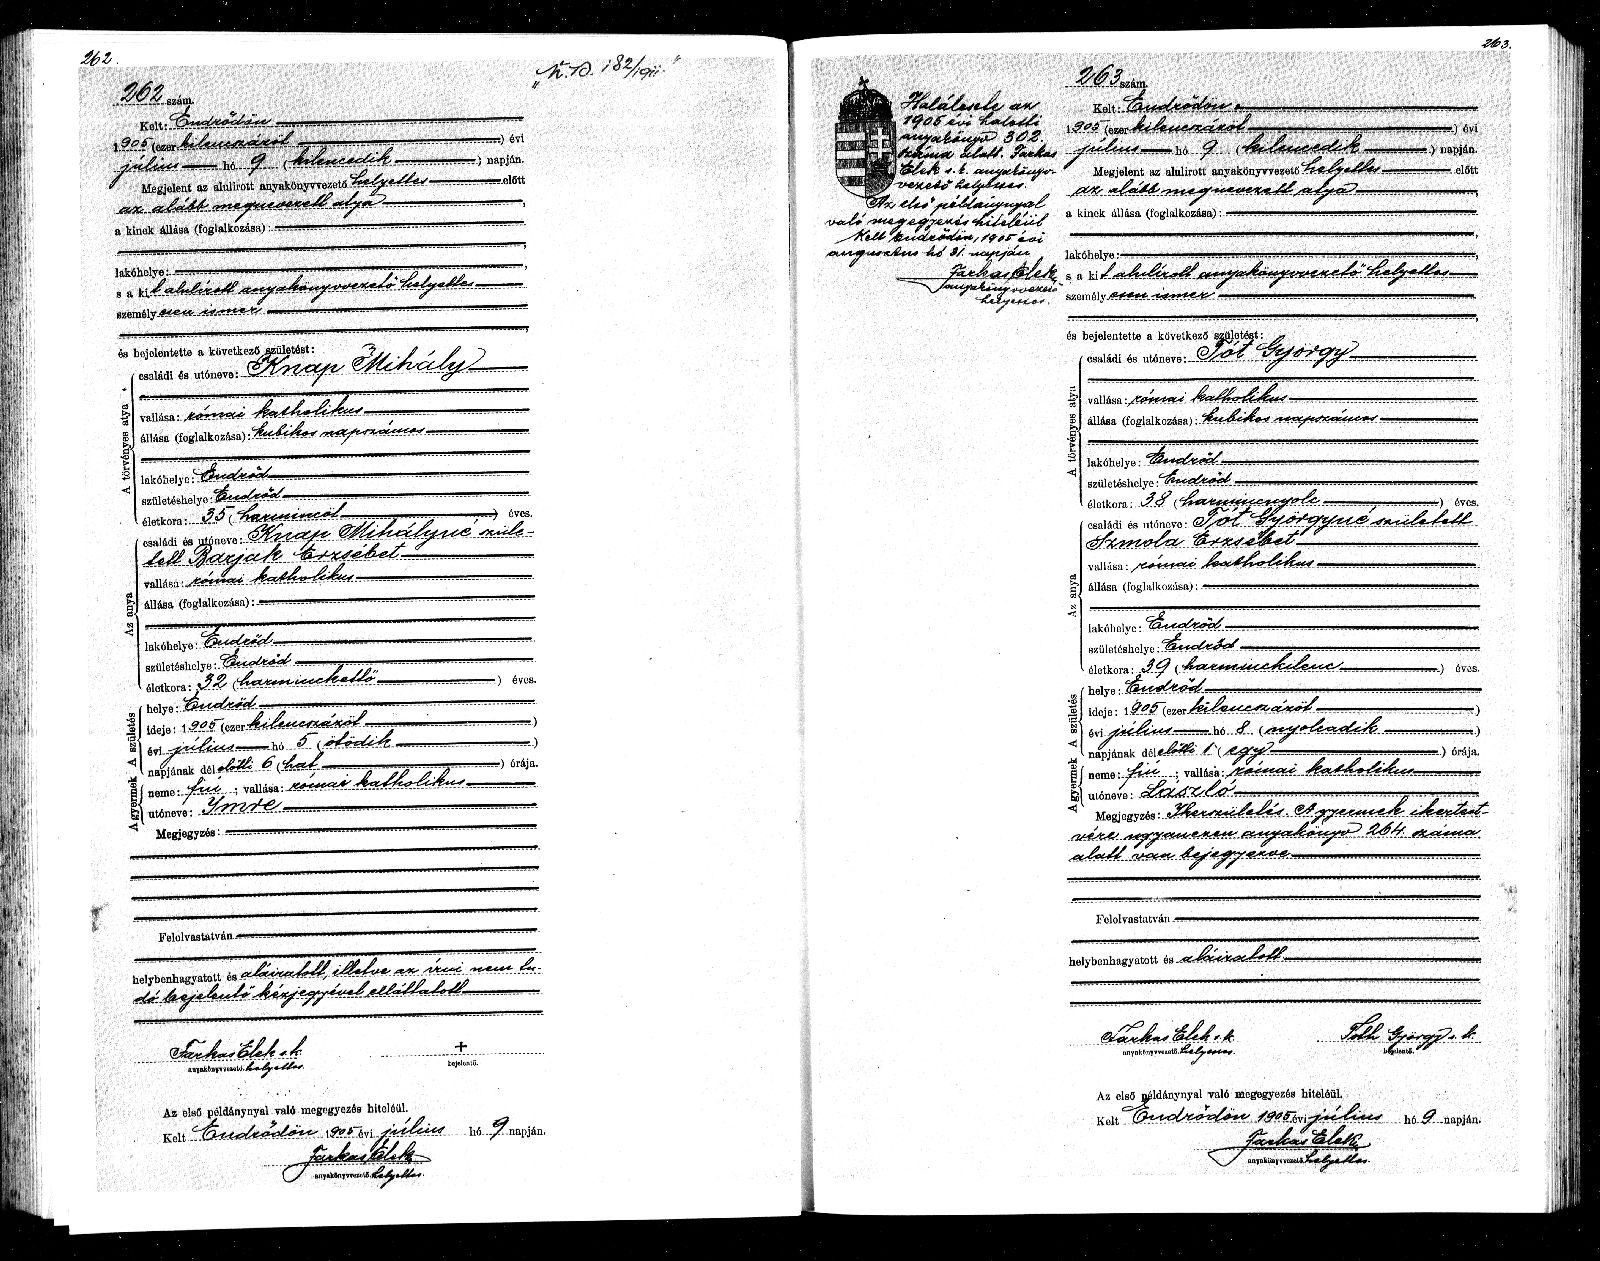 262.
„N. D. 182/1911.”
262 szám.
Kelt: Endrődön
1905 (ezer kilenczázöt) évi
július hó 9 (kilencedik) napján.
Megjelent az alulirott anyakönyvvezető helyettes előtt
az alább megnevezett atya,
a kinek állása (foglalkozása):
lakóhelye:
s a kit alulírott anyakönyvvezető helyettes
személyesen ismer
és bejelentette a következő születést:
A törvényes atya
családi és utóneve: Knap Mihály
vallása: római katholikus
állása (foglalkozása): kubikos napszámos
lakóhelye: Endrőd
születéshelye: Endrőd
életkora: 35 (harmincöt) éves.
Az anya
családi és utóneve: Knap Mihályné szüle-
tett Barjak Erzsébet
vallása: római katholikus
állása (foglalkozása):
lakóhelye: Endrőd
születéshelye: Endrőd
életkora: 32 (harminckettő) éves.
A születés
helye: Endrőd
ideje: 1905 (ezer kilenczázöt)
évi július hó 5 (ötödik)
napjának délelőtti 6 (hat) órája.
A gyermek
neme: fiú; vallása: római katholikus
utóneve: Ymre
Megjegyzés:
Felolvastatván
helybenhagyatott és aláiratott, illetve az írni nem tu-
dó bejelentő kézjegyével elláttatott
Farkas Elek s.k. +
anyakönyvvezető helyettes. bejelentő.
Az első példánynyal való megegyezés hiteléül.
Kelt Endrődön 1905 évi július hó 9 napján.
Farkas Elek
anyakönyvvezető helyettes.
263.
Halálesete az
1905 évi halotti
anyakönyv 302.
száma alatt. Farkas
Elek s.k. anyakönyv-
vezető helyettes.
Az első példánynyal
való megegyezés hiteléül
Kelt Endrődön, 1905 évi
augusztus hó 31. napján
Farkas Elek
anyakönyvvezető
helyettes.
263 szám.
Kelt: Endrődön
1905 (ezer kilenczázöt) évi
július hó 9 (kilencedik) napján.
Megjelent az alulirott anyakönyvvezető helyettes előtt
az alább megnevezett atya
a kinek állása (foglalkozása):
lakóhelye:
s a kit alulírott anyakönyvvezető helyettes
személyesen ismer
és bejelentette a következő születést:
A törvényes atya
családi és utóneve: Tót György
vallása: római katholikus
állása (foglalkozása): kubikos napszámos
lakóhelye: Endrőd
születéshelye: Endrőd
életkora: 38 (harmincnyolc) éves.
Az anya
családi és utóneve: Tót Györgyné született
Szmola Erzsébet
vallása: római katholikus
állása (foglalkozása):
lakóhelye: Endrőd
születéshelye: Endrőd
életkora: 39 (harminckilenc) éves.
A születés
helye: Endrőd
ideje: 1905 (ezer kilenczázöt)
évi július hó 8 (nyolcadik)
napjának délelőtti 1 (egy) órája.
A gyermek
neme: fiú; vallása: római katholikus
utóneve: László
Megjegyzés: Ikerszületés. A gyermek ikertest-
vére ugyanezen anyakönyv 264. száma
alatt van bejegyezve
Felolvastatván
helybenhagyatott és aláiratott
Farkas Elek s.k. Toth György s.k.
anyakönyvvezető helyettes. bejelentő.
Az első példánynyal való megegyezés hiteléül.
Kelt Endrődön 1905 évi július hó 9 napján.
Farkas Elek
anyakönyvvezető helyettes.